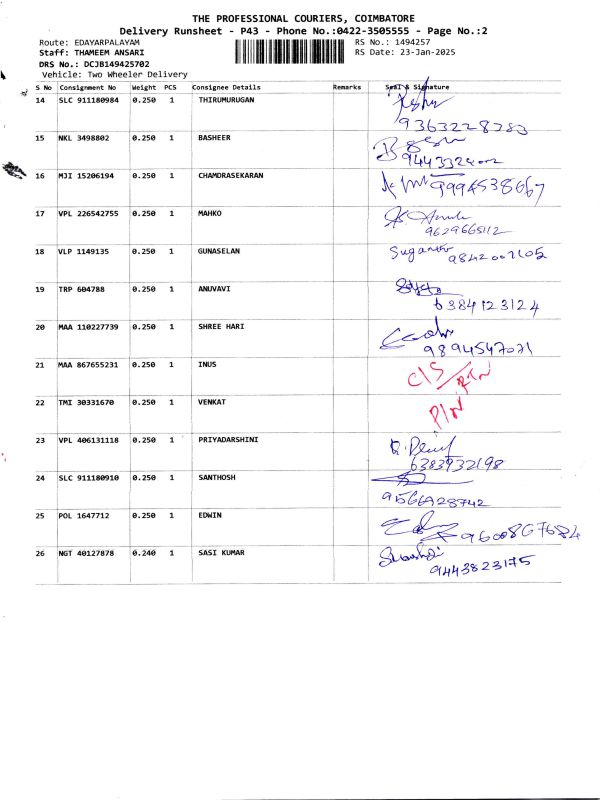 THE PROFESSIONAL COURIERS, COIMBATORE
Delivery Runsheet - P43 - Phone No.:0422-3505555 - Page No.:2
Route: EDAYARPALAYAM RS No.: 1494257
Staff: THAMEEM ANSARI RS Date: 23-Jan-2025
DRS No.: DCJB149425702
Vehicle: Two Wheeler Delivery
S No Consignment No Weight PCS Consignee Details Remarks Seal & Signature
14 SLC 911180984 0.250 1 THIRUMURUGAN
9363228383
15 NKL 3498802 0.250 1 BASHEER
16 MJI 15206194 0.250 1 CHAMDRASEKARAN 9994538667
17 VPL 226542755 0.250 1 MAHKO
9629665112
18 VLP 1149135 0.250 1 GUNASELAN 9842007105
19 TRP 604788 0.250 1 ANUVAVI
6384123124
20 MAA 110227739 0.250 1 SHREE HARI
9894547071
21 MAA 867655231 0.250 1 INUS C/S RTN
22 TMI 30331670 0.250 1 VENKAT P/N
23 VPL 406131118 0.250 1 PRIYADARSHINI
6383932198
24 SLC 911180910 0.250 1 SANTHOSH
9566928742
25 POL 1647712 0.250 1 EDWIN 9600867684
26 NGT 40127878 0.240 1 SASI KUMAR
9443823175